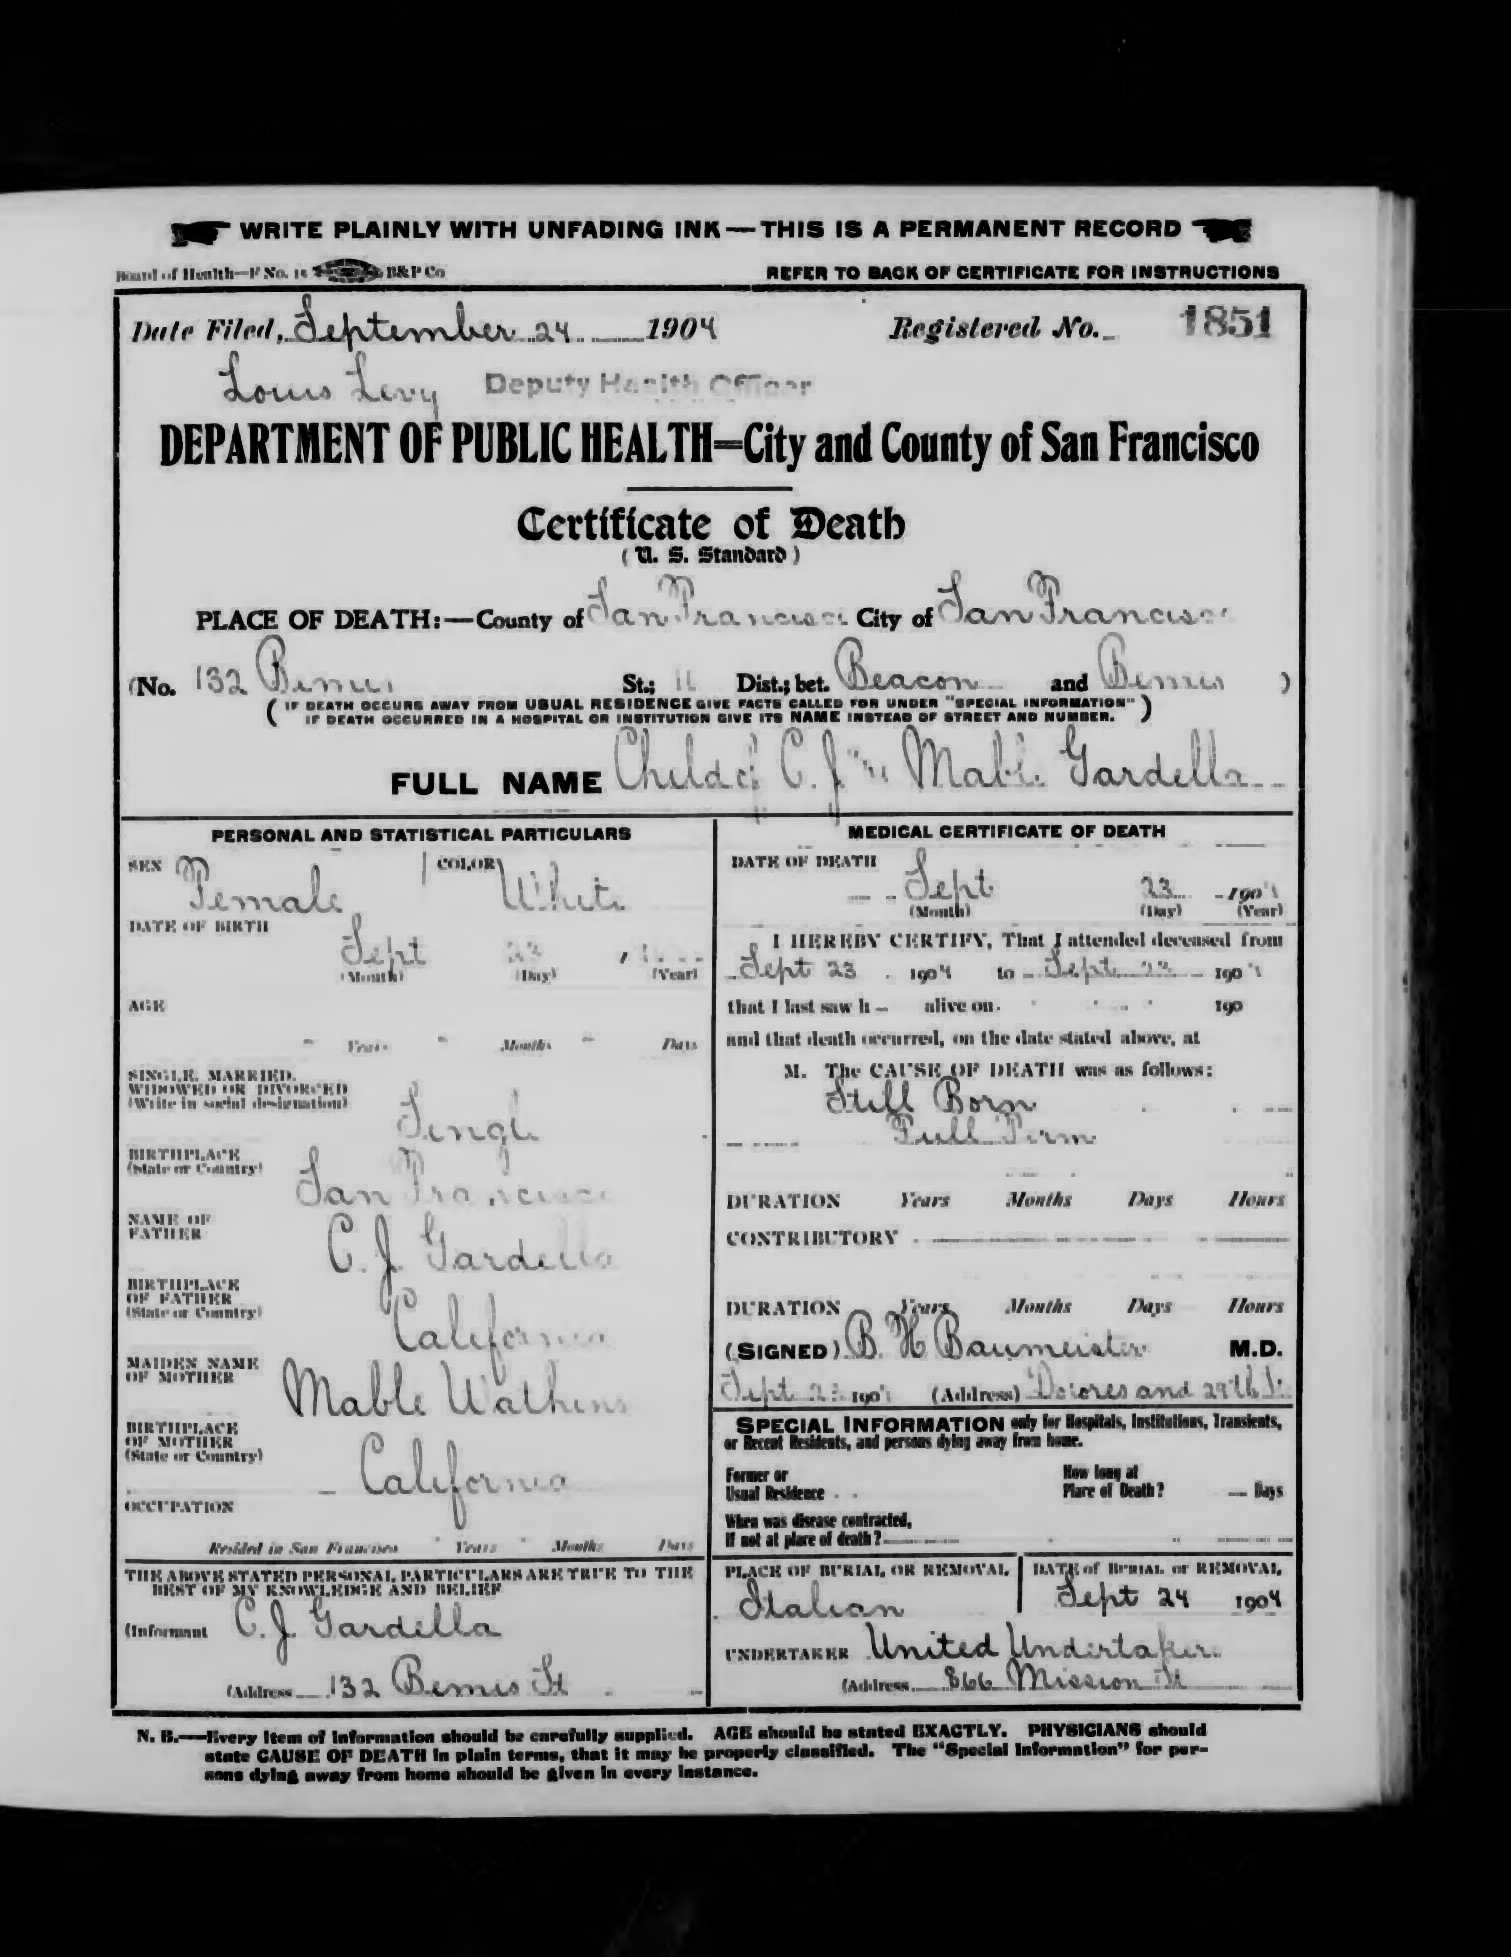 WRITE PLAINLY WITH UNFADING INK—THIS IS A PERMANENT RECORD
Board of Health—F No. 15 B&P Co REFER TO BACK OF CERTIFICATE FOR INSTRUCTIONS
Date Filed, September 24 1904 Registered No. 1851
Louis Levy Deputy Health Officer
DEPARTMENT OF PUBLIC HEALTH=City and County of San Francisco
Certificate of Death
(U. S. Standard)
PLACE OF DEATH:—County of San Francisco City of San Francisco
(No. 132 Bemis St.; 11 Dist.; bet. Beacon and Bemis )
( IF DEATH OCCURS AWAY FROM USUAL RESIDENCE GIVE FACTS CALLED FOR UNDER "SPECIAL INFORMATION" )
IF DEATH OCCURRED IN A HOSPITAL OR INSTITUTION GIVE ITS NAME INSTEAD OF STREET AND NUMBER.
FULL NAME Child of C. J. Mable Gardella
PERSONAL AND STATISTICAL PARTICULARS
SEX Female COLOR White
DATE OF BIRTH
Sept 23 , 1
(Month) (Day) (Year)
AGE
Years Months Days
SINGLE, MARRIED,
WIDOWED OR DIVORCED
(Write in social designation)
Single
BIRTHPLACE
(State or Country)
San Francisco
NAME OF
FATHER
C. J. Gardella
BIRTHPLACE
OF FATHER
(State or Country)
California
MAIDEN NAME
OF MOTHER
Mable Watkins
BIRTHPLACE
OF MOTHER
(State or Country)
California
OCCUPATION
Resided in San Francisco Years Months Days
THE ABOVE STATED PERSONAL PARTICULARS ARE TRUE TO THE
BEST OF MY KNOWLEDGE AND BELIEF
(Informant C. J. Gardella
(Address 132 Bemis St
MEDICAL CERTIFICATE OF DEATH
DATE OF DEATH
Sept 23 1904
(Month) (Day) (Year)
I HEREBY CERTIFY, That I attended deceased from
Sept 23 1904 to Sept 23 1904
that I last saw h – alive on 190
and that death occurred, on the date stated above, at
M. The CAUSE OF DEATH was as follows:
Still Born
Full Term
DURATION Years Months Days Hours
CONTRIBUTORY
DURATION Years Months Days Hours
(SIGNED) B. H Baumeister M.D.
Sept 23 1904 (Address) Dolores and 29th St.
SPECIAL INFORMATION only for Hospitals, Institutions, Transients,
or Recent Residents, and persons dying away from home.
Former or
Usual Residence
How long at
Place of Death? Days
When was disease contracted,
If not at place of death?
PLACE OF BURIAL OR REMOVAL
Italian
DATE of BURIAL or REMOVAL
Sept 24 1904
UNDERTAKER United Undertakers
(Address 866 Mission St
N. B.—Every item of information should be carefully supplied. AGE should be stated EXACTLY. PHYSICIANS should
state CAUSE OF DEATH in plain terms, that it may be properly classified. The "Special Information" for per-
sons dying away from home should be given in every instance.